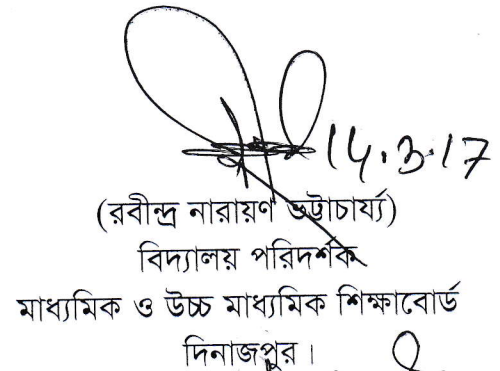 14.3.17
(রবীন্দ্র নারায়ণ ভট্টাচার্য্য)
বিদ্যালয় পরিদর্শক
মাধ্যমিক ও উচ্চ মাধ্যমিক শিক্ষাবোর্ড
দিনাজপুর।